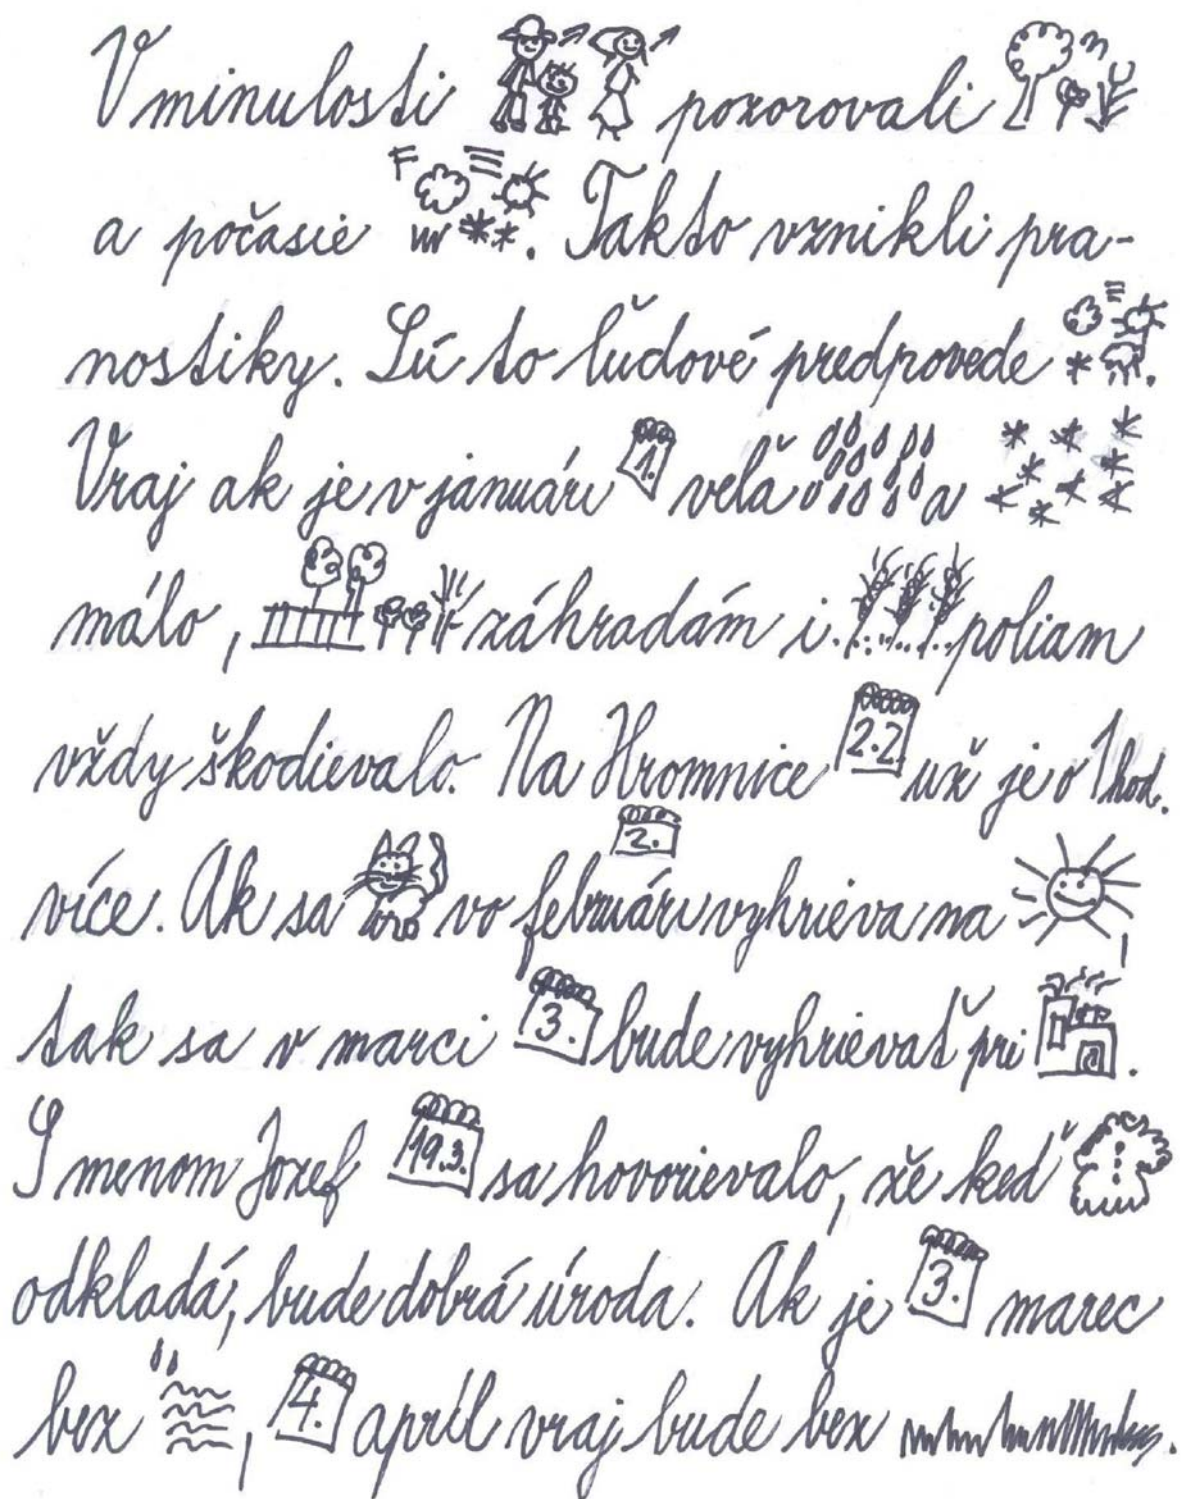 V minulosti pozorovali
a počasie. Takto vznikli pra-
nostiky. Sú to ľudové predpovede.
Vraj ak je v januári 1. veľa a
málo, záhradám i poliam
vždy škodievalo. Na Hromnice 2.2. už je o 1 hod.
více. Ak sa vo februári 2. vyhrieva na,
tak sa v marci 3. bude vyhrievať pri.
S menom Jozef 19.3. sa hovorievalo, že keď
odkladá, bude dobrá úroda. Ak je 3. marec
bez, 4. apríl vraj bude bez.